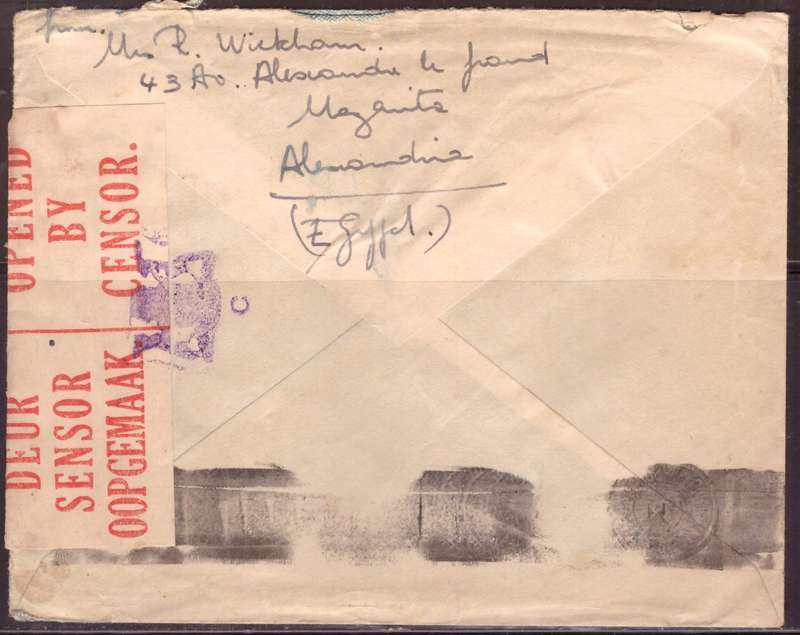 from.
Mrs R. Wickham.
43 Av. Alexandre le grand
Mazarita
Alexandria
(Egypt.)
OPENED BY CENSOR.
DEUR SENSOR OOPGEMAAK.
C